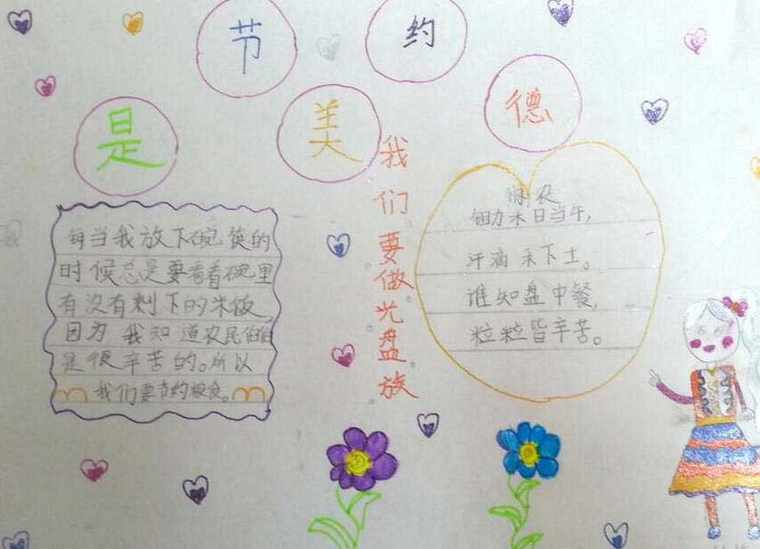 节约
是美德
我们要做光盘族
每当我放下碗筷的
时候总是要看看碗里
有没有剩下的米饭
因为我知道农民伯伯
是很辛苦的。所以
我们要节约粮食。
悯农
锄禾日当午,
汗滴禾下土。
谁知盘中餐,
粒粒皆辛苦。